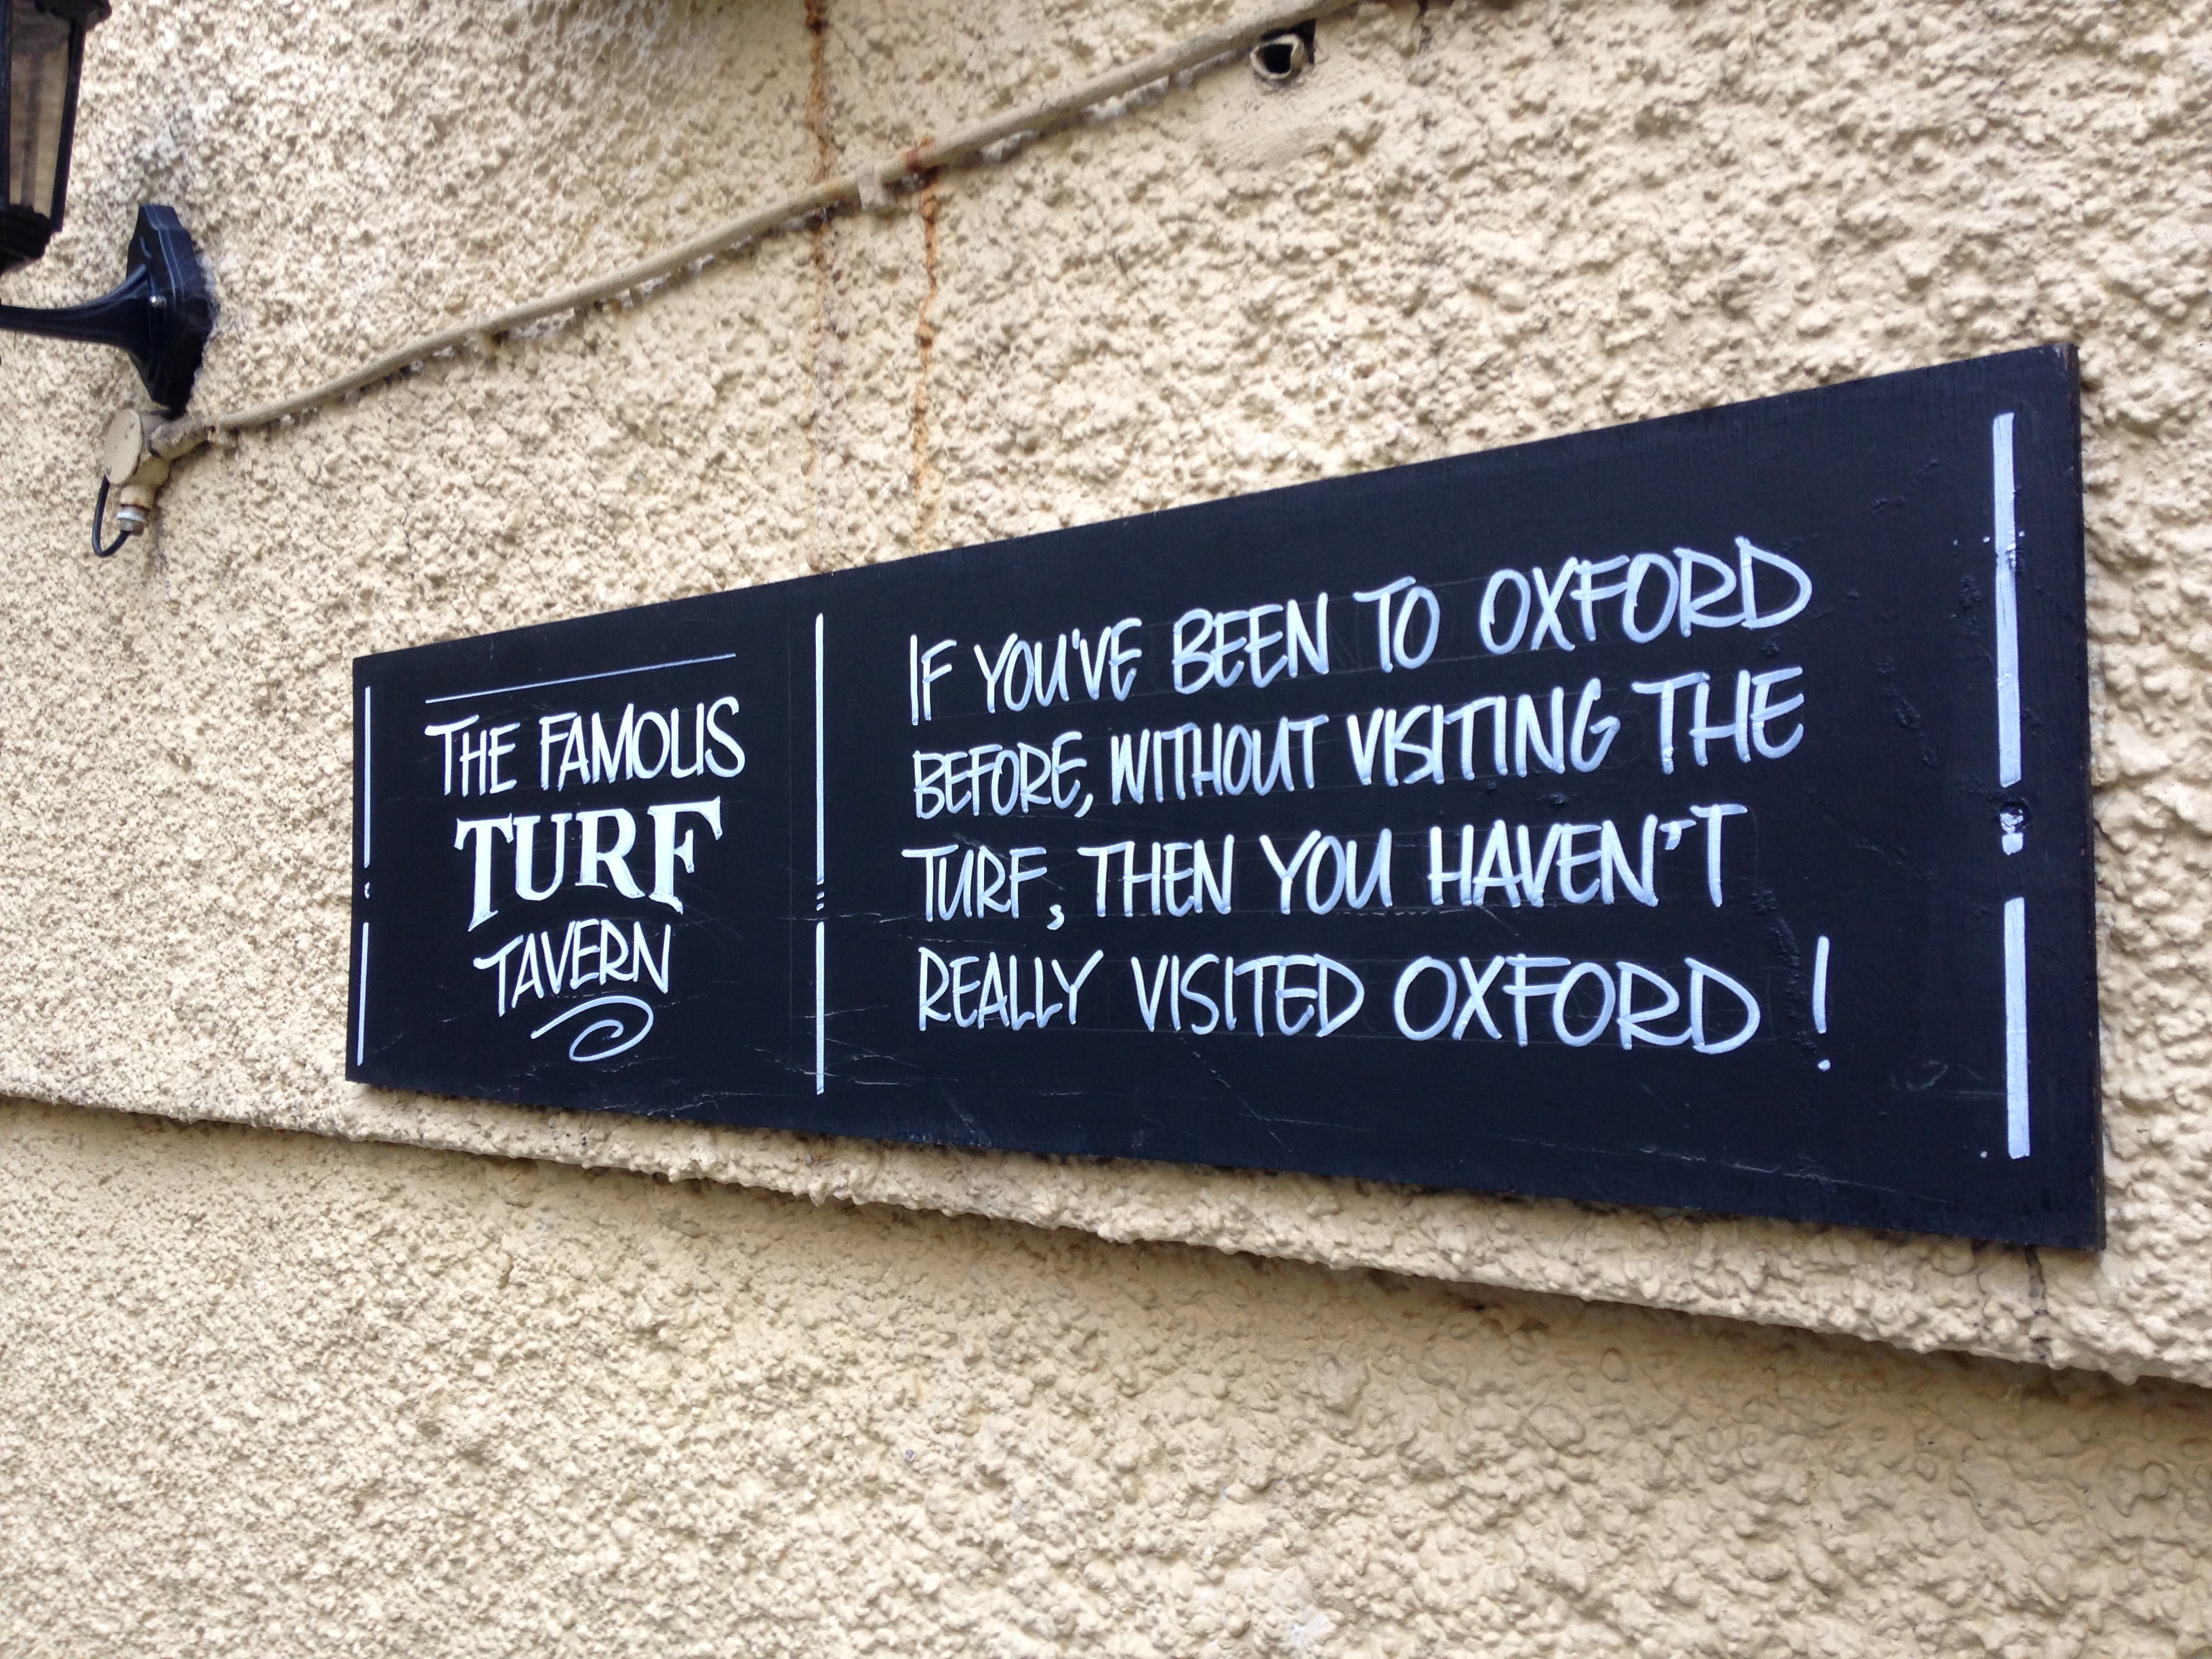 THE FAMOUS
TURF
TAVERN
IF YOU'VE BEEN TO OXFORD
BEFORE, WITHOUT VISITING THE
TURF, THEN YOU HAVEN'T
REALLY VISITED OXFORD!